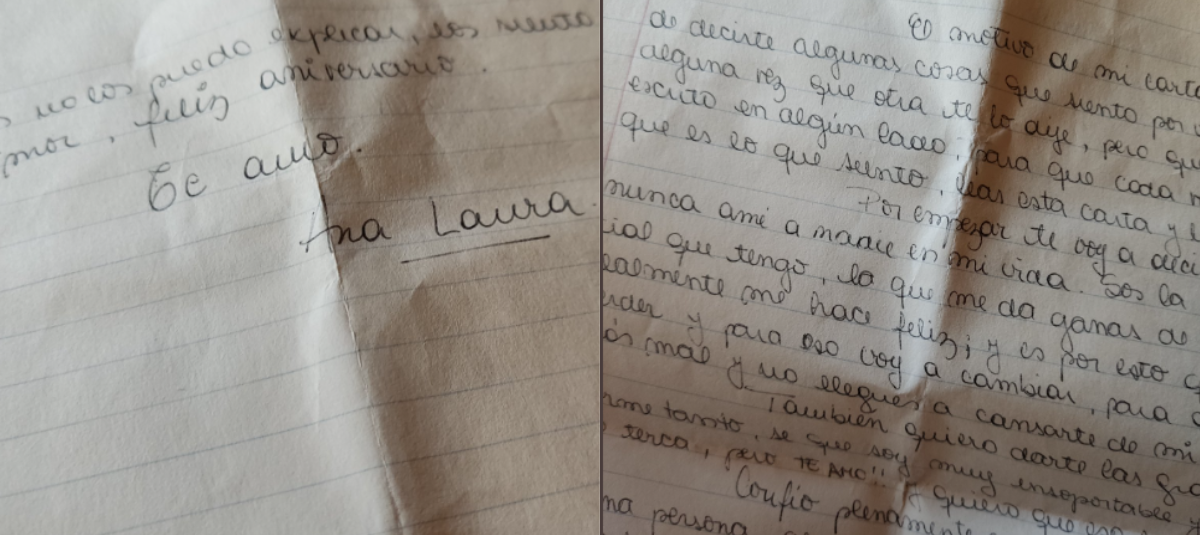 no los puedo explicar, los siento
mor, feliz aniversario.
Te amo.
Ana Laura.
El motivo de mi carta
de decirte algunas cosas que siento por
alguna vez que otra te lo dije, pero
escrito en algún lado, para que cada
que es lo que siento, leas esta carta y
Por empezar te voy a deci
nunca amé a nadie en mi vida. Sos la
ial que tengo, la que me da ganas de
ealmente me hace feliz; y es por esto
y para eso voy a cambiar, para
ós mal y no llegues a cansarte de mi
También quiero darte las gra
rme tanto, se que soy muy insoportable
terca, pero TE AMO!!
Confío plenamente
quiero que
na persona